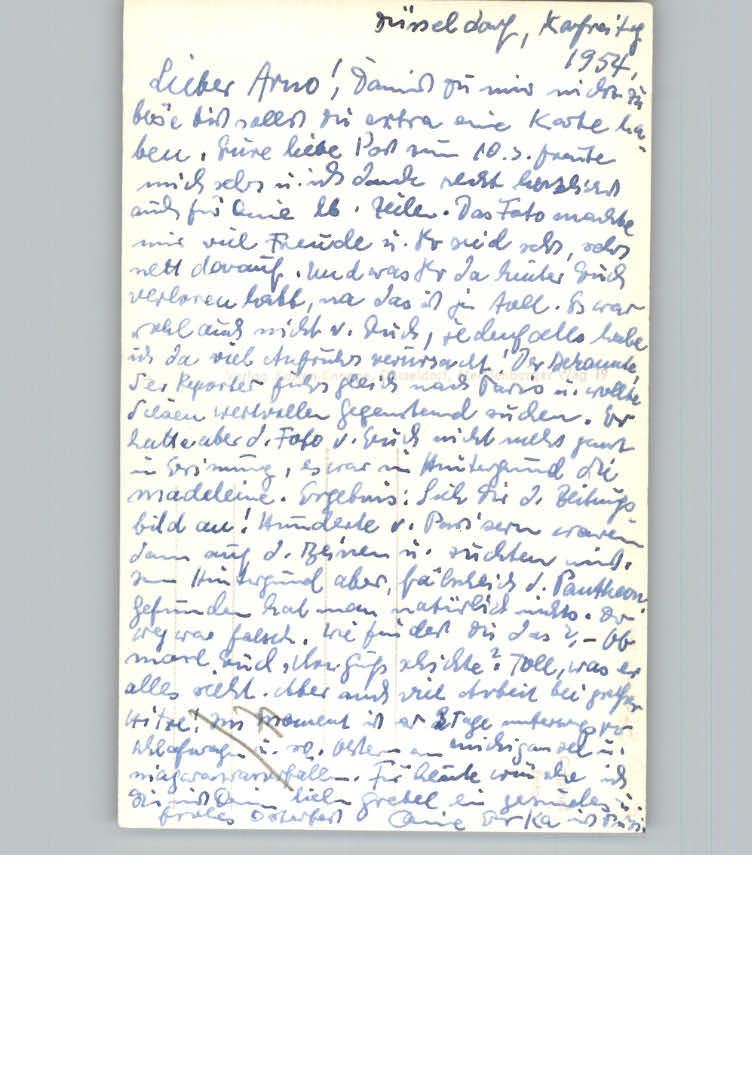 Düsseldorf, Karfreitag
1954,
Lieber Arno! Damit Du mir nicht zu
böse bist sollst Du extra eine Karte ha-
ben. Eure liebe Post vom 10.3. freute
mich sehr u. ich danke recht herzlichst
auch für Deine lb. Zeilen. Das Foto machte
mir viel Freude u. Ihr seid sehr, sehr
nett darauf. Und was Ihr da hinter Euch
verloren habt, na das ist ja toll. Es war
wohl auch nicht v. Euch, jedenfalls habe
ich da viel Aufruhr verursacht! Der bekannte
Reporter fuhr gleich nach Paris u. wollte
diesen wertvollen Gegenstand suchen. Er
hatte aber d. Foto v. Euch nicht mehr ganz
in Erinnung, es war im Hintergrund die
Madeleine. Ergebnis: Sieh Dir d. Zeitungs
bild an! Hunderte v. Parisern waren
dann auf d. Beinen u. suchten mit.
Im Hintergrund aber, fälschlich d. Pantheon
Gefunden hat man natürlich nichts. Der
Weg war falsch. Wie findest Du das?, – Ob
man Euch schickte? Toll, was er
alles sieht. Aber auch viel Arbeit bei großer
Hitze! Im Moment ist er 3 Tage unterwegs
Schlafwagen u. Ostern am Michigansee u.
Niagarawasserfällen. Für heute wünsche ich
Dir mit Deiner lieben Gretel ein gesundes u.
frohes Osterfest Deine Erika